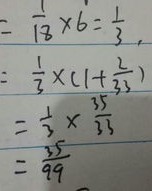 = 1/18 × 6 = 1/3,
= 1/3 × (1 + 2/33)
= 1/3 × 35/33
= 35/99